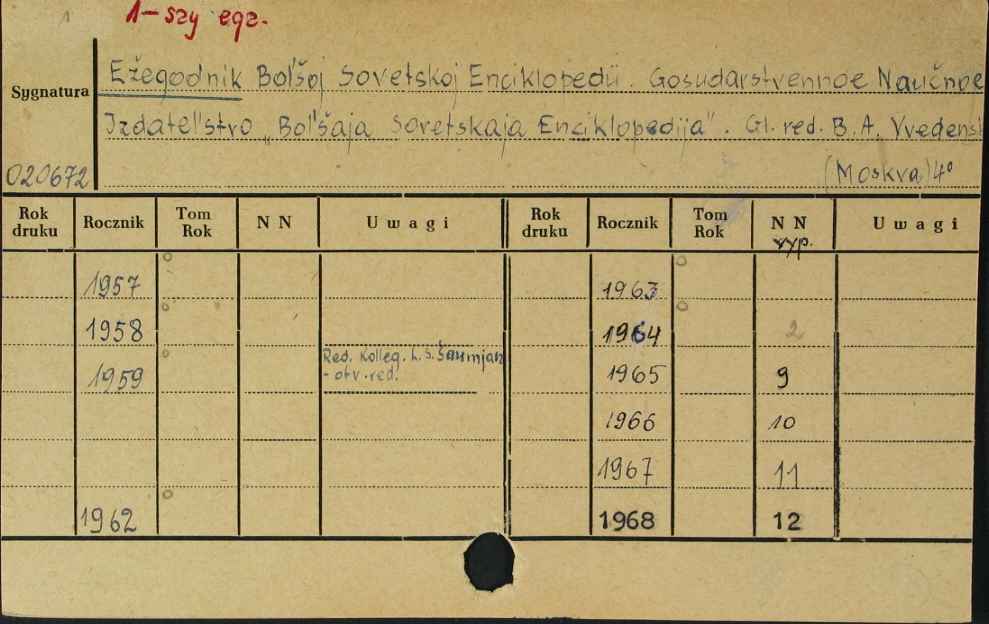 1
1-szy egz.
Ežegodnik Bol'šoj Sovetskoj Enciklopedii. Gosudarstvennoe Naučnoe
Sygnatura
Izdatel'stvo „Bol'šaja Sovetskaja Enciklopedija". Gl. red. B. A. Vvedensk
020672
(Moskva) 4°
Rok druku Rocznik Tom Rok N N Uwagi Rok druku Rocznik Tom Rok N N Uwagi
vyp.
1957 1963
1958 1964 2
1959 Red. kolleg. L. S. Šaumjan - otv. red. 1965 9
1966 10
1967 11
1962 1968 12